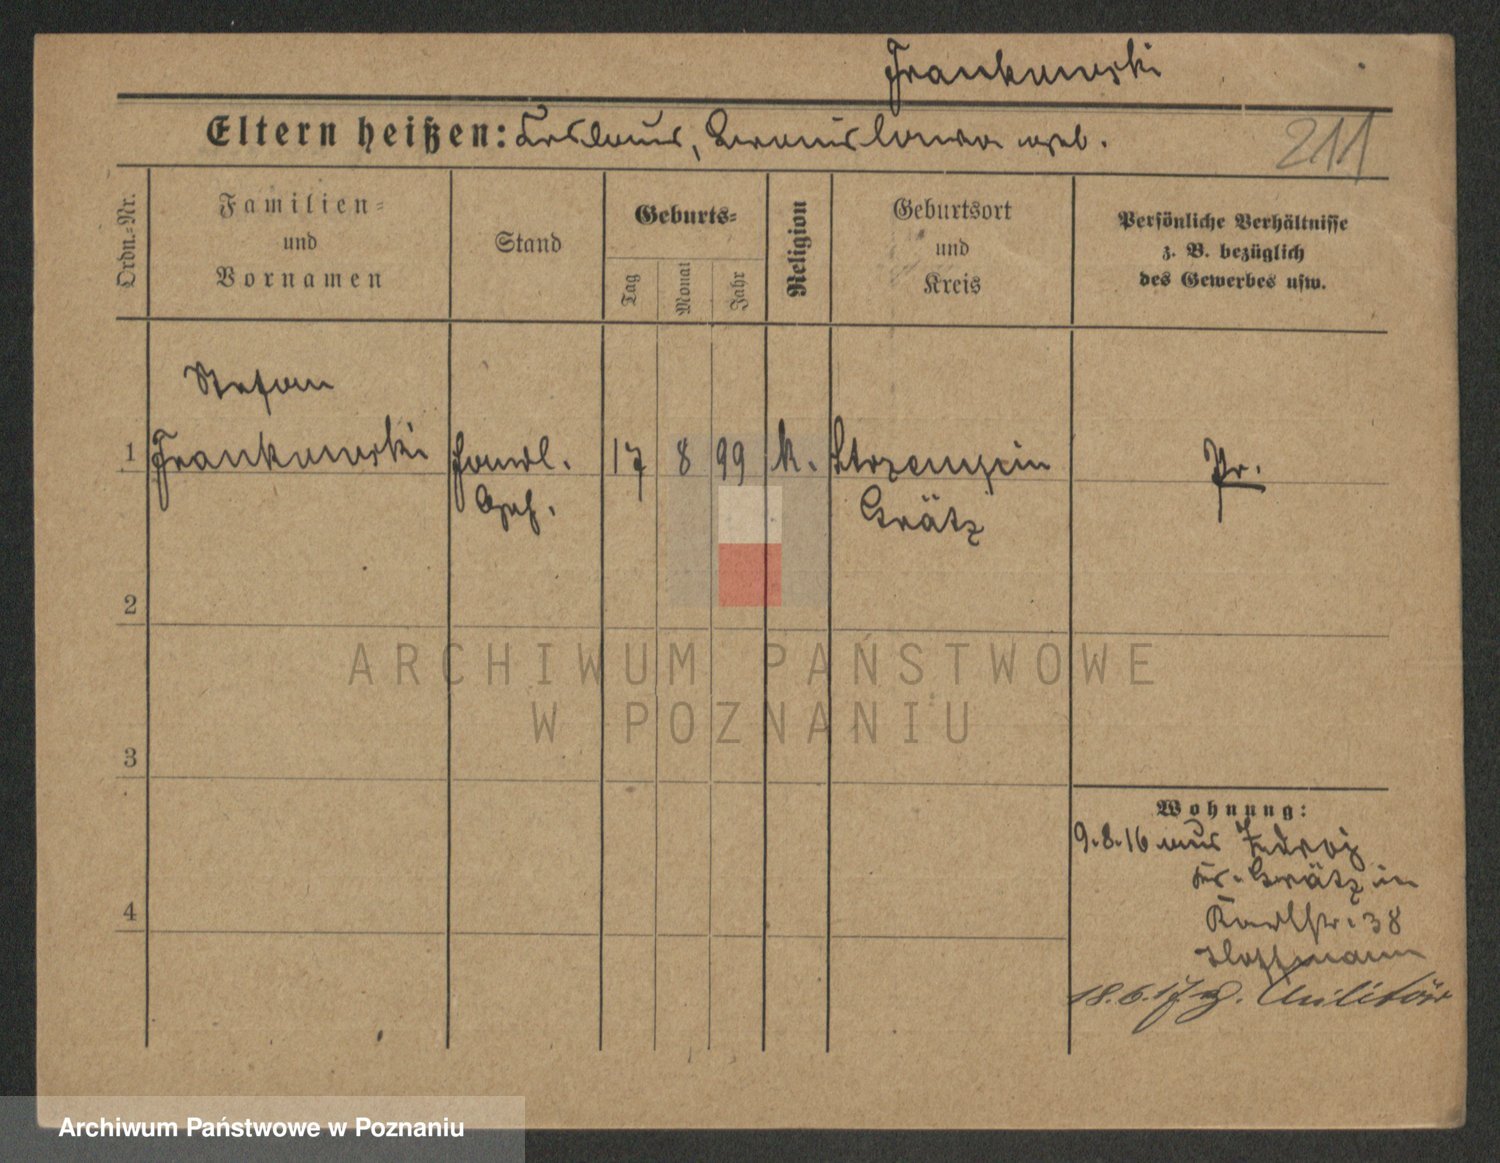 Frankowski
Eltern heißen: Ladislaus, Bronislawa geb.
211
Ordn.=Nr.
Familien=
und
Vornamen
Stand
Geburts=
Tag
Monat
Jahr
Religion
Geburtsort
und
Kreis
Persönliche Verhältnisse
z. B. bezüglich
des Gewerbes usw.
Stefan
1 Frankowski Handl. 17 8 99 k. Pr.
Geh. Grätz
2
3
4
ARCHIWUM PAŃSTWOWE
W POZNANIU
Wohnung:
9.8.16 aus
Kr. Grätz in
Karlstr. 38
Hoffmann
18.6.17 z. Militär
Archiwum Państwowe w Poznaniu